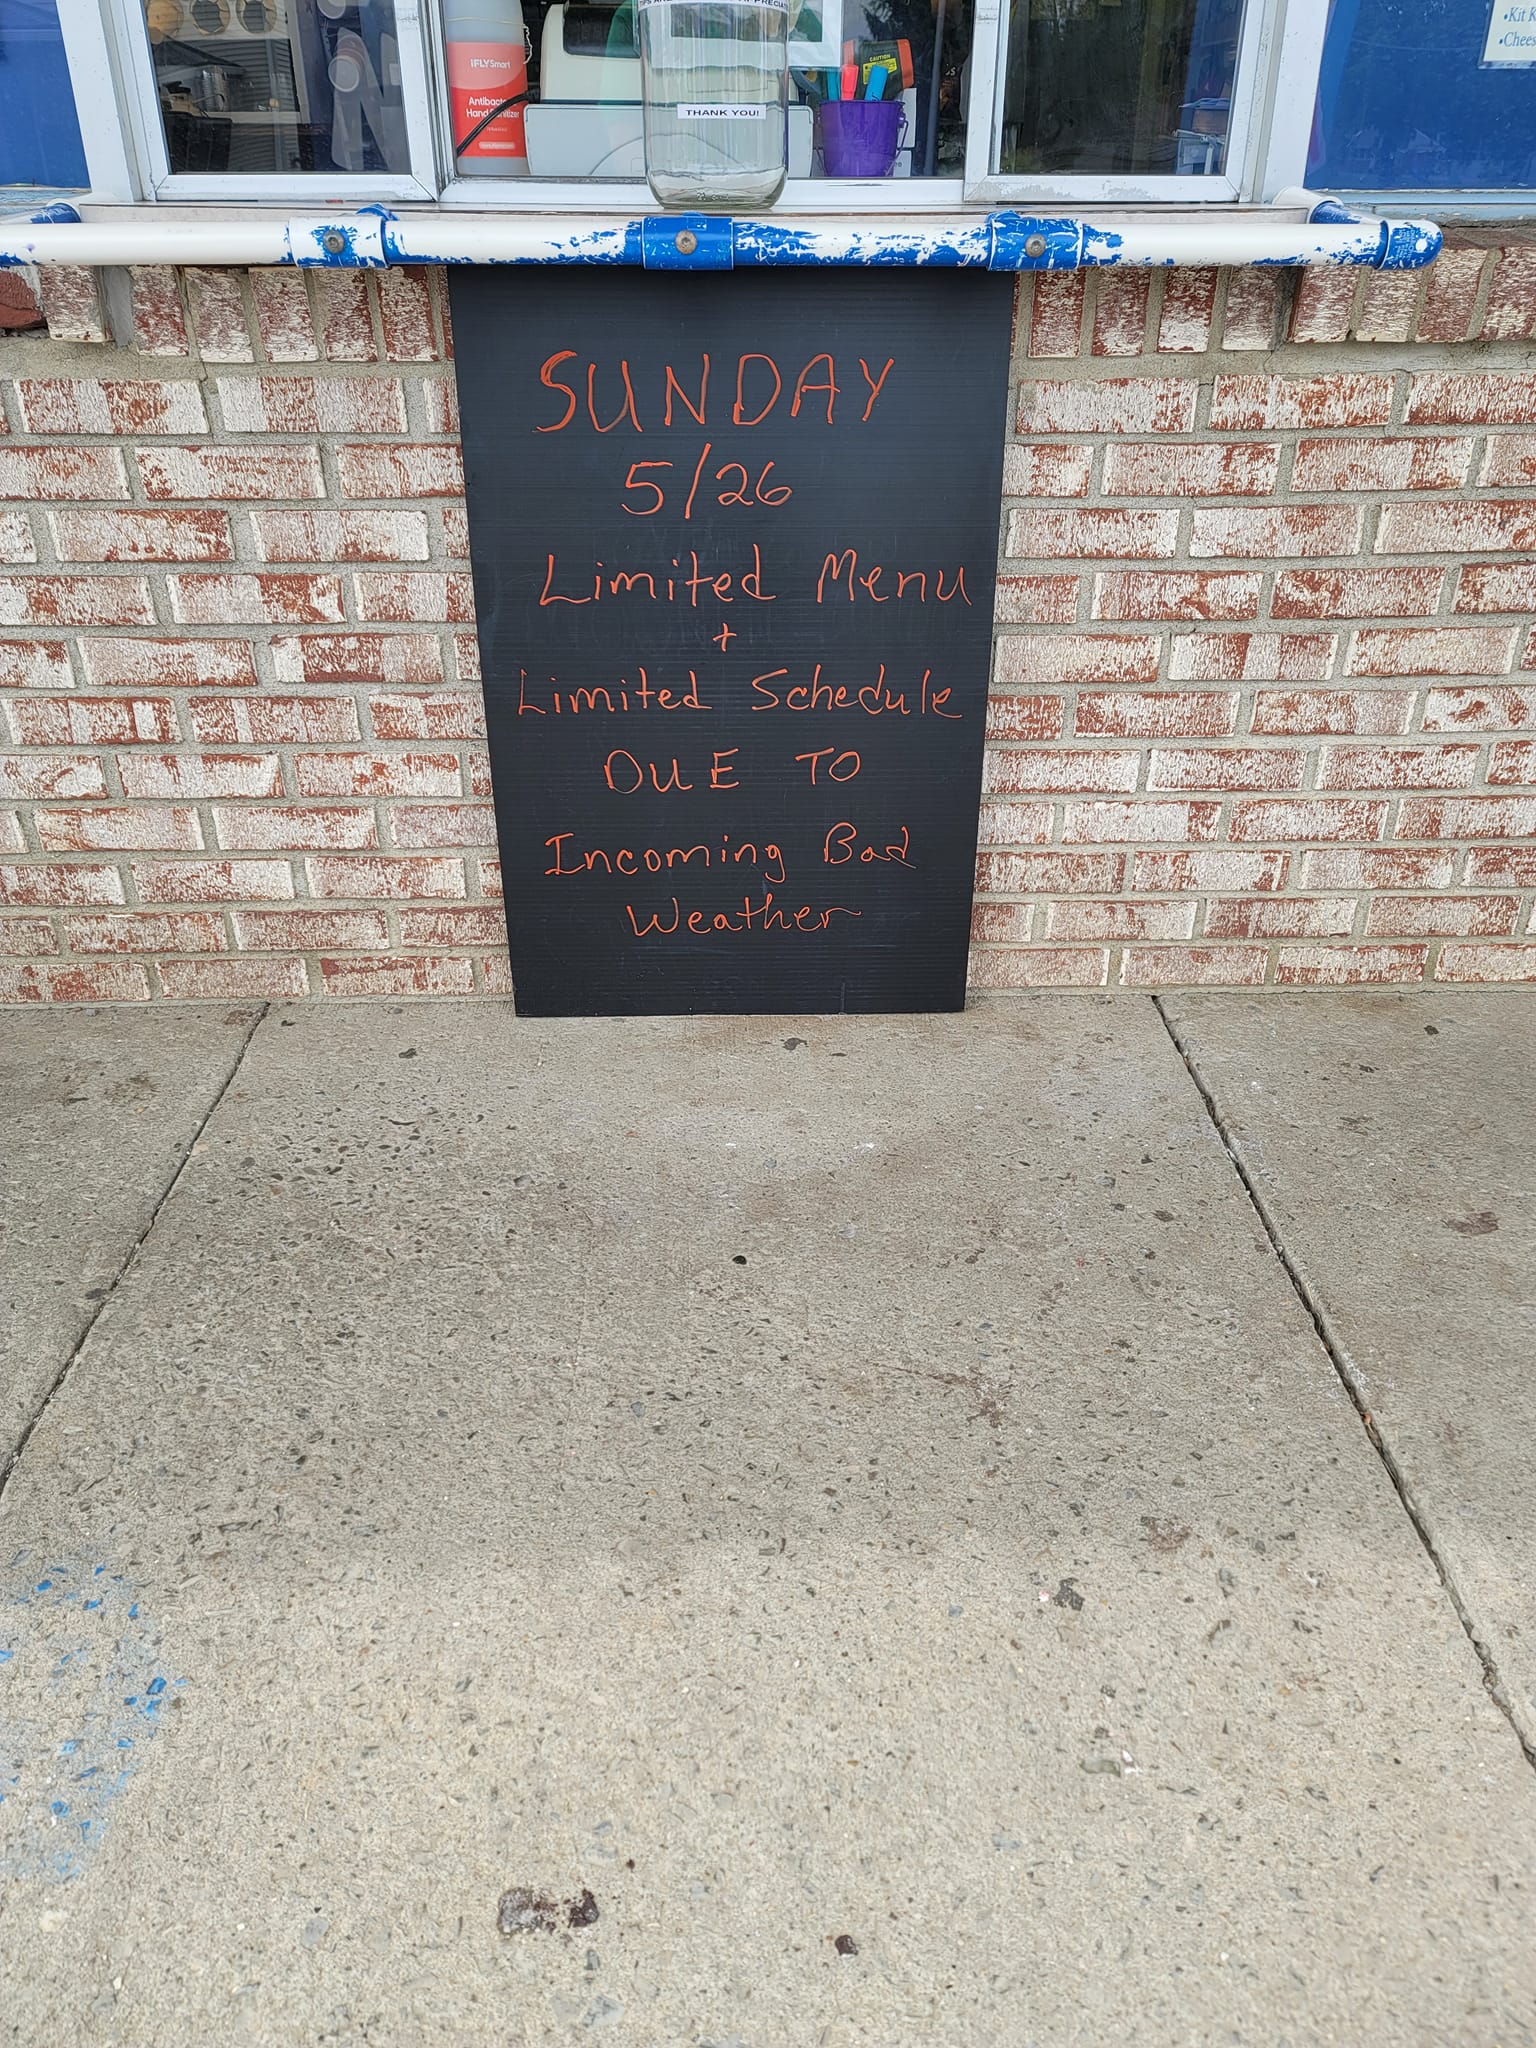 iFLYSmart
Antibac
Hand Sanitizer
THANK YOU!
CAUTION
•Kit K
•Chees
SUNDAY
5/26
Limited Menu
+
Limited Schedule
DUE TO
Incoming Bad
Weather